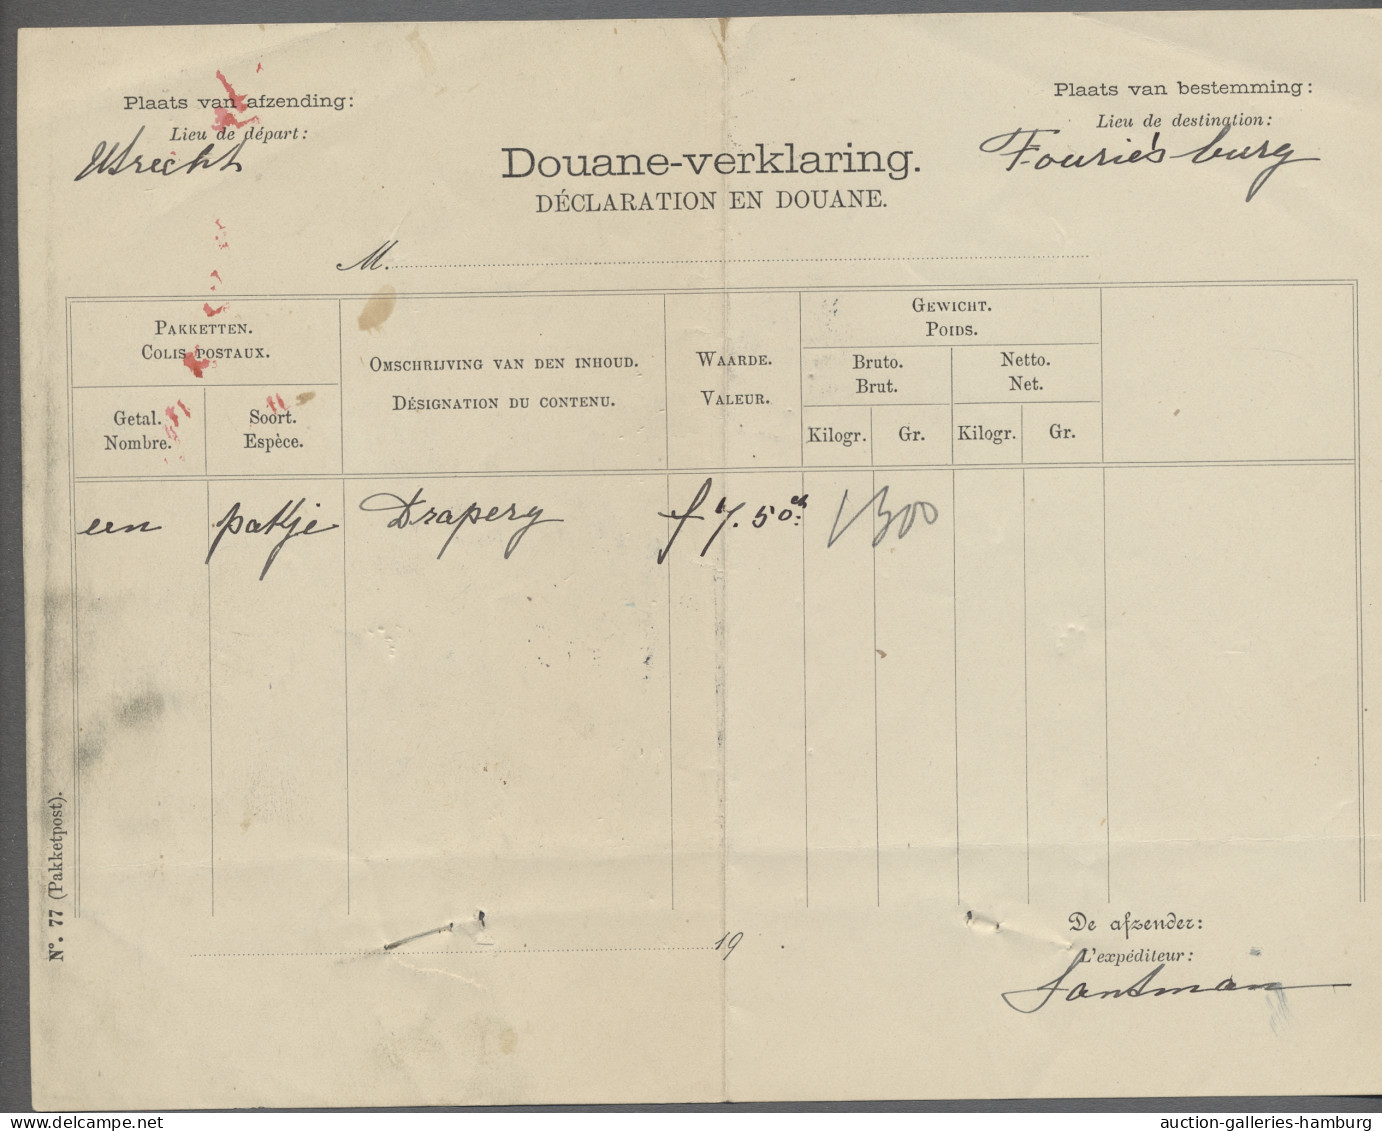 Plaats van afzending:
Lieu de départ:
Utrecht
Plaats van bestemming:
Lieu de destination:
Fouriesburg
Douane-verklaring.
DÉCLARATION EN DOUANE.
M.
PAKKETTEN.
COLIS POSTAUX.
Getal.
Nombre.
Soort.
Espèce.
OMSCHRIJVING VAN DEN INHOUD.
DÉSIGNATION DU CONTENU.
WAARDE.
VALEUR.
GEWICHT.
POIDS.
Bruto.
Brut.
Netto.
Net.
Kilogr. Gr. Kilogr. Gr.
een pakje Drapery f 7.50 ct. 1 300
N°. 77 (Pakketpost).
19
De afzender:
L'expéditeur:
Santman
www.delcampe.net
auction-galleries-hamburg